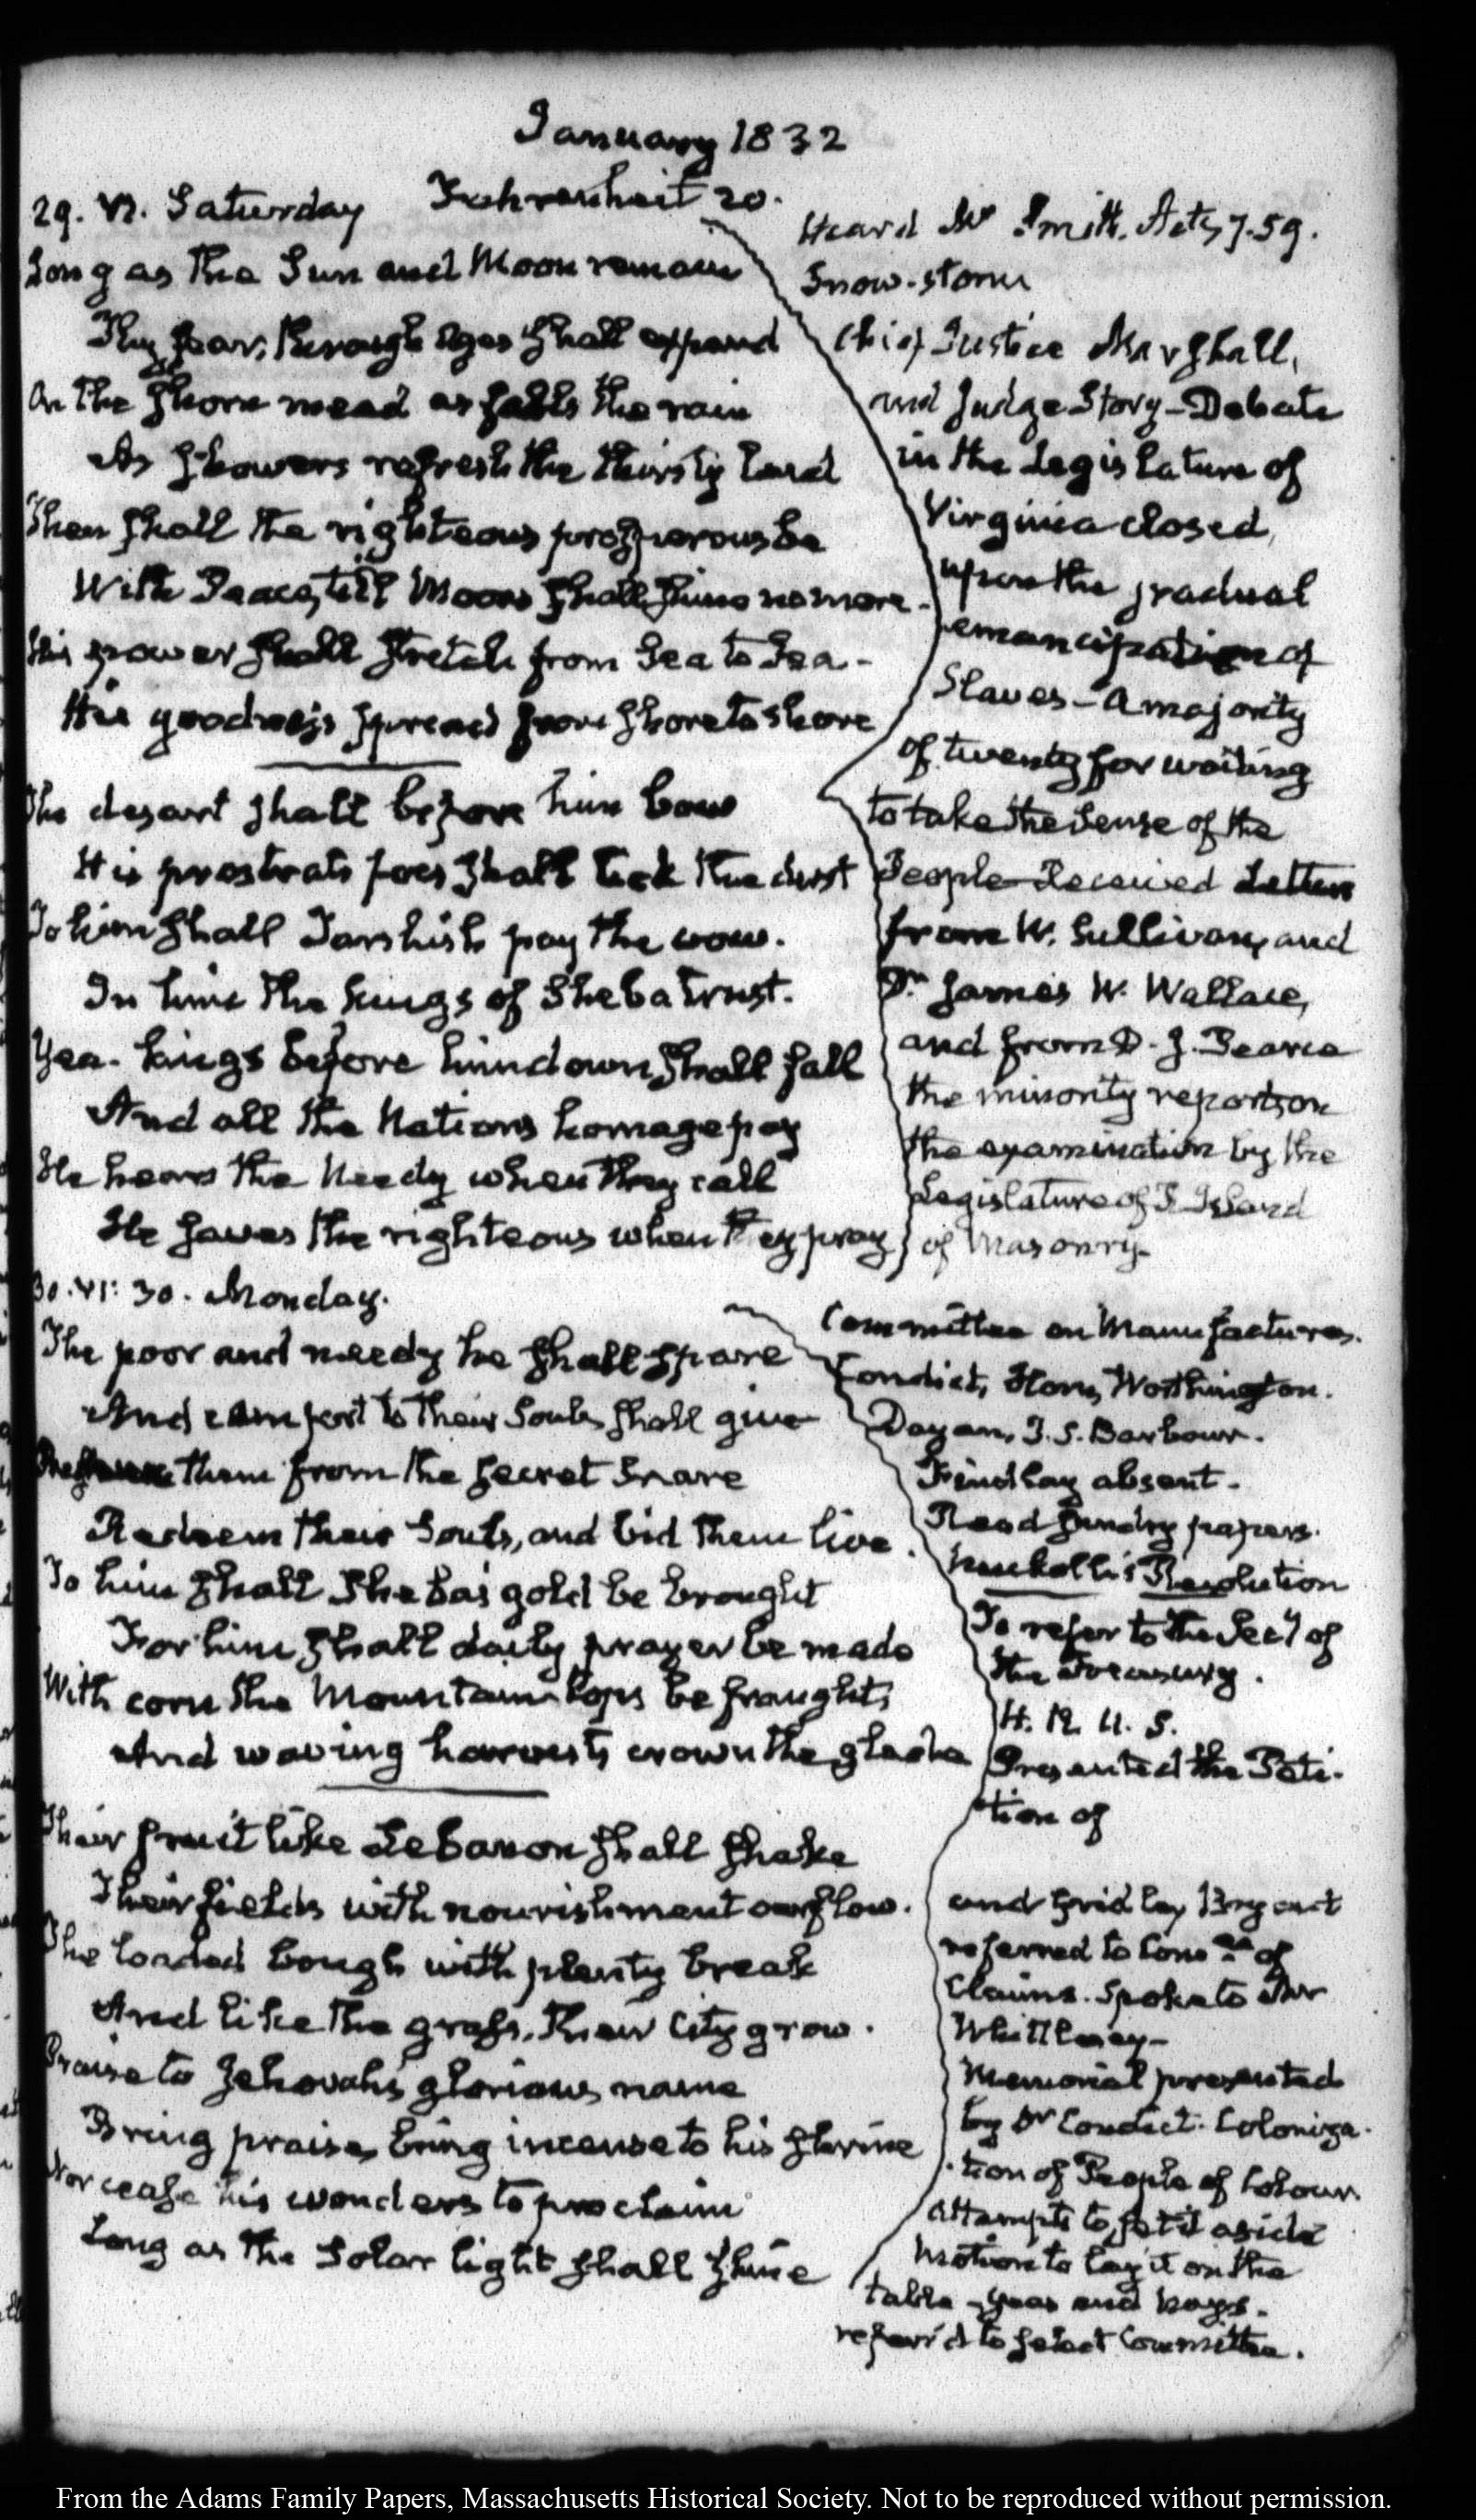 January 1832
29. VI. Saturday Fahrenheit 20.
Long as the Sun and Moon remain
Thy fear, through ages shall expand
On the shorn mead as falls the rain
As showers refresh the thirsty land
Then shall the righteous prosperous be
With Peace, till Moons shall shine no more.
His power shall stretch from Sea to Sea-
His goodness spread from shore to shore
The desart shall before him bow
His prostrate foes shall lick the dust
To him shall Tarshish pay the vow.
In him the kings of Sheba trust.
Yea. kings before him down shall fall
And all the Nations homage pay
He hears the Needy when they call
He saves the righteous when they pray
Heard Mr Smith. Acts 7.59.
Snow-storm
Chief Justice Marshall,
and Judge Story-Debate
in the Legislature of
Virginia closed,
upon the gradual
emancipation of
Slaves-A majority
of twenty for waiting
to take the Sense of the
People-Received Letters
from W. Sullivan, and
Dr James W. Wallace,
and from D. J. Pearce
the minority report on
the examination by the
Legislature of R. Island
of Masonry-
30. VI: 30. Monday.
The poor and needy he shall spare
And comfort to their Souls shall give
them from the secret Snare
Redeem their Souls, and bid them live.
To him shall Sheba's gold be brought
For him shall daily prayer be made
With corn the Mountain tops be fraught,
And waving harvests crown the glade
Their fruit like Lebanon shall shake
Their fields with nourishment o'erflow.
The loaded bough with plenty break
And like the grass, their City grow.
Praise to Jehovah's glorious name
Bring praise, bring incense to his shrine
Nor cease his wonders to proclaim
Long as the Solar light shall shine
Committee on Manufactures.
Condict, Horn, Worthington.
Dayan, J. S. Barbour.
Findlay absent.
Read sundry papers.
Nuckolls's Resolution
To refer to the Secy of
the Treasury.
H. R. U. S.
Presented the Peti-
tion of
and Gridley Bryant
referred to Comee of
Claims. Spoke to Mr
Whittlesey-
Memorial presented
by Dr Condict. Coloniza-
tion of People of Colour.
Attempts to set it aside
Motion to lay it on the
table-yeas and nays.
referr'd to select Committee.
From the Adams Family Papers, Massachusetts Historical Society. Not to be reproduced without permission.